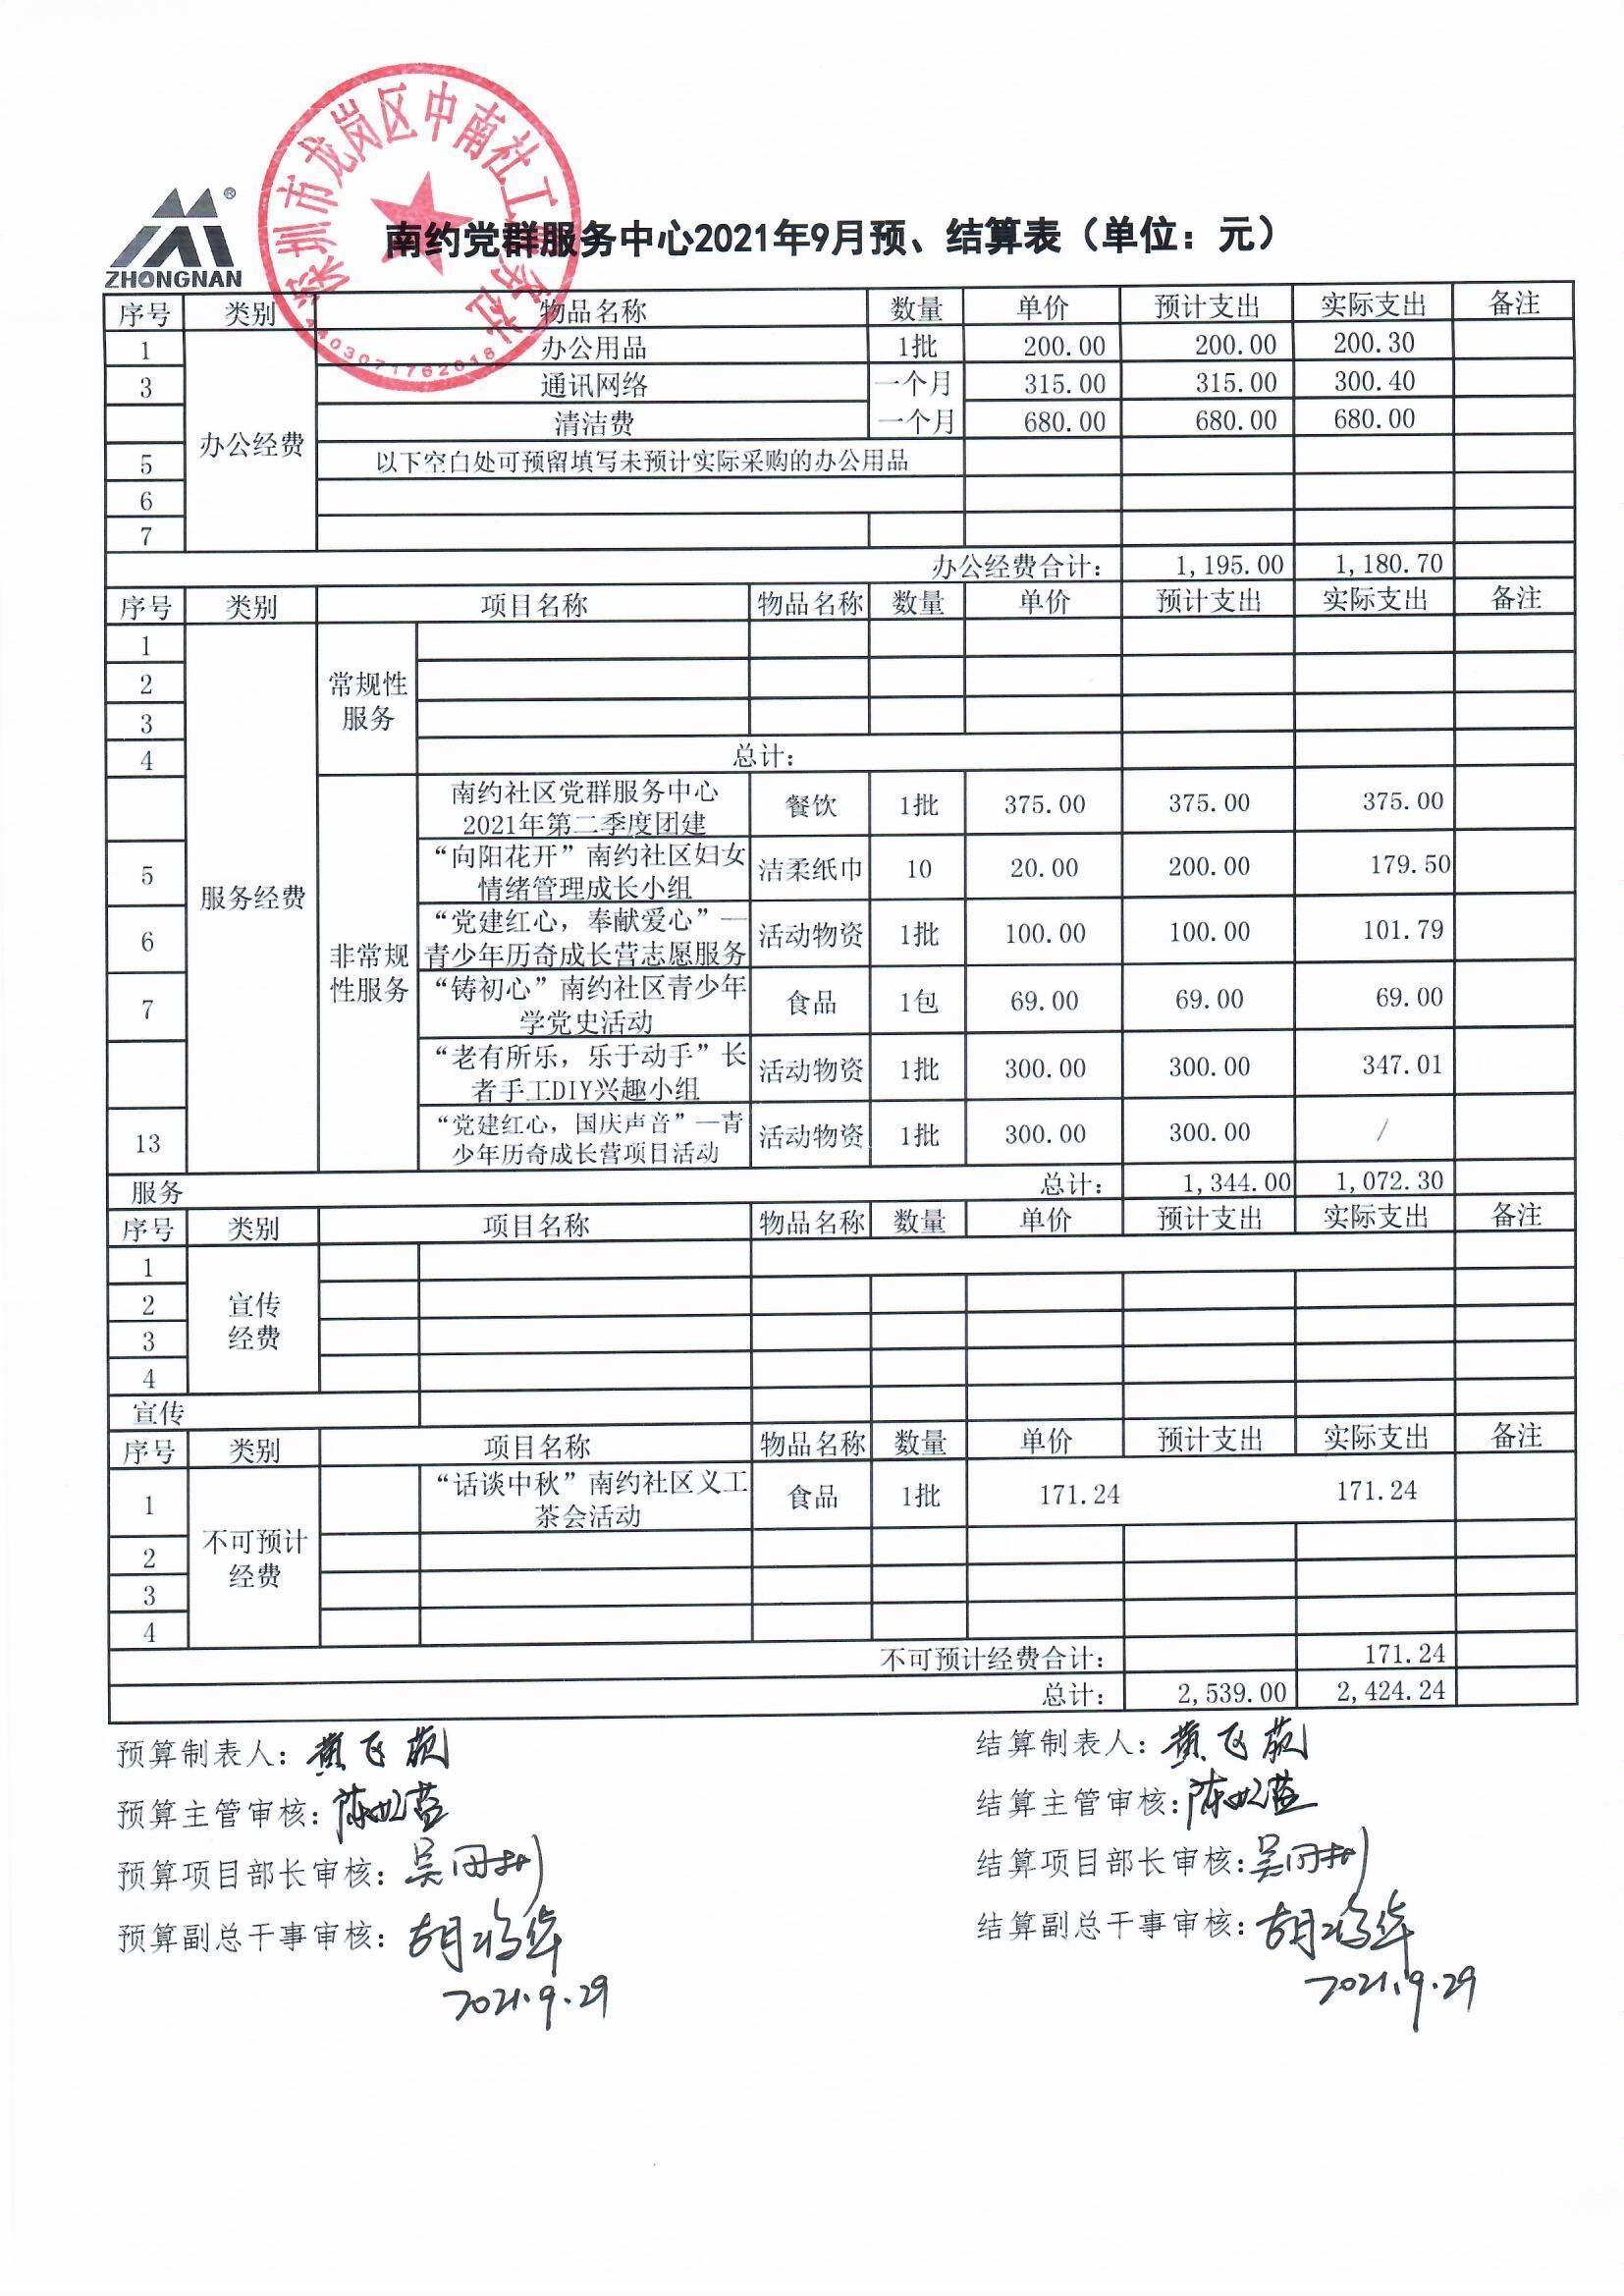 深圳市龙岗区中南社工服务社
ZHONGNAN
南约党群服务中心2021年9月预、结算表（单位：元）
序号 类别 物品名称 数量 单价 预计支出 实际支出 备注
1 办公用品 1批 200.00 200.00 200.30
3 通讯网络 一个月 315.00 315.00 300.40
清洁费 一个月 680.00 680.00 680.00
办公经费
5 以下空白处可预留填写未预计实际采购的办公用品
6
7
办公经费合计： 1,195.00 1,180.70
序号 类别 项目名称 物品名称 数量 单价 预计支出 实际支出 备注
1
2 常规性
3 服务
4 总计：
南约社区党群服务中心
2021年第二季度团建 餐饮 1批 375.00 375.00 375.00
服务经费
非常规
性服务
5 “向阳花开”南约社区妇女
情绪管理成长小组 洁柔纸巾 10 20.00 200.00 179.50
6 “党建红心，奉献爱心”—
青少年历奇成长营志愿服务 活动物资 1批 100.00 100.00 101.79
7 “铸初心”南约社区青少年
学党史活动 食品 1包 69.00 69.00 69.00
“老有所乐，乐于动手”长
者手工DIY兴趣小组 活动物资 1批 300.00 300.00 347.01
13 “党建红心，国庆声音”—青
少年历奇成长营项目活动 活动物资 1批 300.00 300.00 /
服务 总计： 1,344.00 1,072.30
序号 类别 项目名称 物品名称 数量 单价 预计支出 实际支出 备注
1
2 宣传
3 经费
4
宣传
序号 类别 项目名称 物品名称 数量 单价 预计支出 实际支出 备注
1 “话谈中秋”南约社区义工
茶会活动 食品 1批 171.24 171.24
不可预计
经费
2
3
4
不可预计经费合计： 171.24
总计： 2,539.00 2,424.24
预算制表人： 结算制表人：
预算主管审核： 结算主管审核：
预算项目部长审核： 结算项目部长审核：
预算副总干事审核： 结算副总干事审核：
2021.9.29 2021.9.29